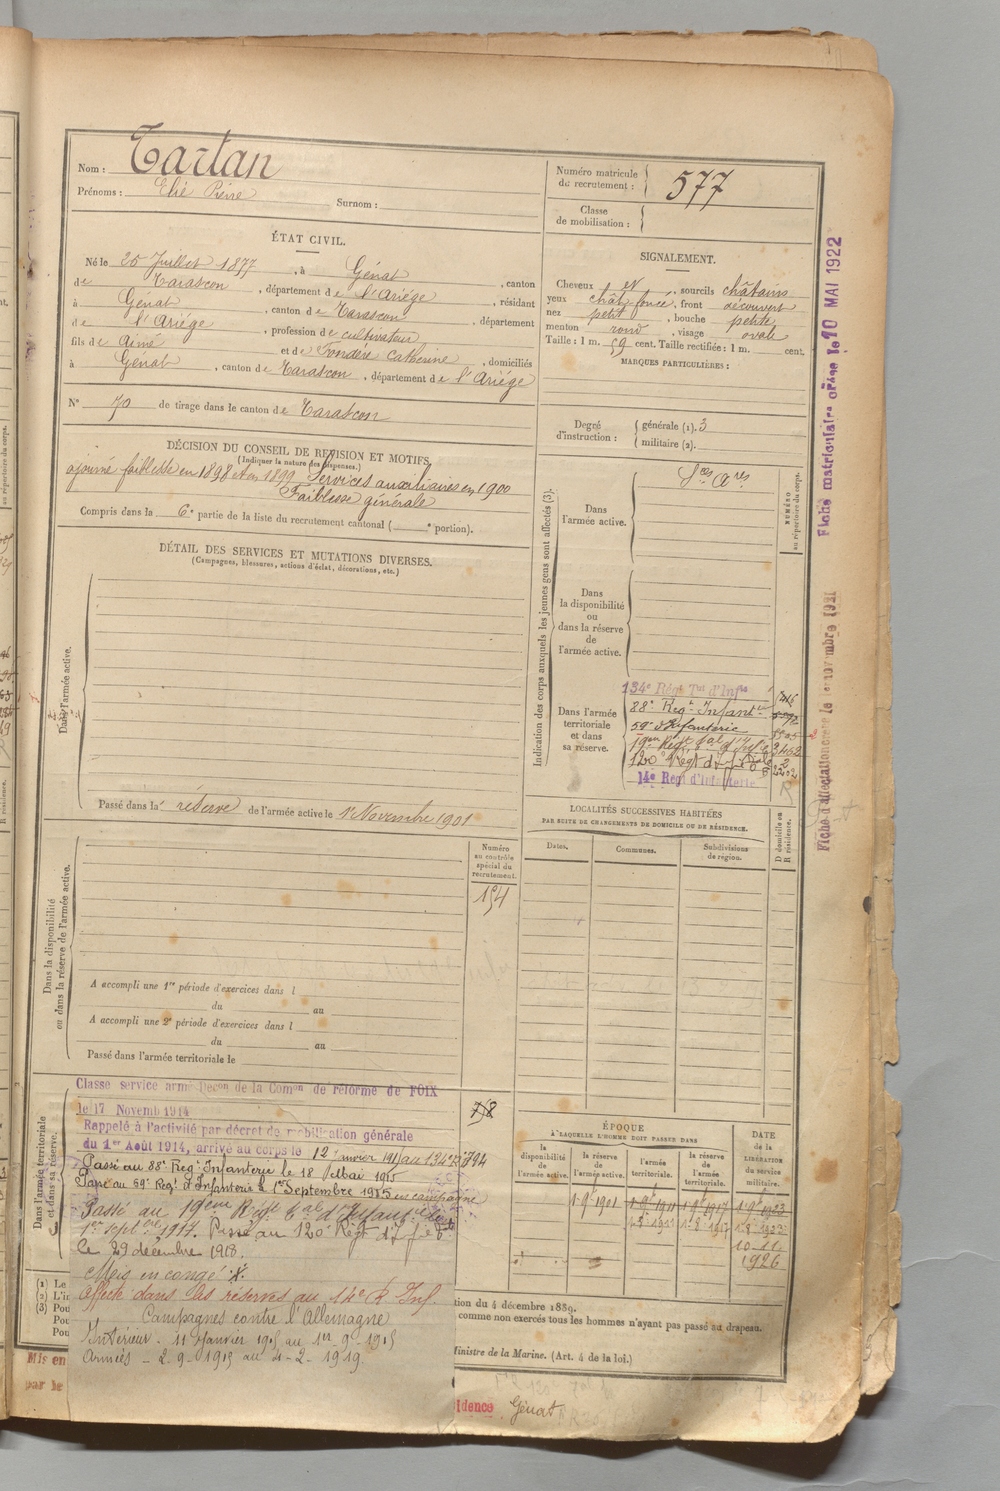 Nom : Tartan
Prénoms : Elie Pierre Surnom :
Numéro matricule du recrutement : 577
Classe de mobilisation :
ÉTAT CIVIL.
Né le 25 Juillet 1877, à Génat, canton
de Tarascon, département de l'Ariège, résidant
à Génat, canton de Tarascon, département
de l'Ariège, profession de cultivateur
fils de Aimé et de Fondère Catherine, domiciliés
à Génat, canton de Tarascon, département de l'Ariège
N° 70 de tirage dans le canton de Tarascon
SIGNALEMENT.
Cheveux et, sourcils châtains
yeux chât. foncé, front découvert
nez petit, bouche petite
menton rond, visage ovale
Taille : 1 m. 59 cent. Taille rectifiée : 1 m. cent.
MARQUES PARTICULIÈRES :
Degré d'instruction : générale (1). 3
militaire (2).
DÉCISION DU CONSEIL DE REVISION ET MOTIFS.
(Indiquer la nature des dispenses.)
ajourné faiblesse en 1898 et en 1899 Services auxiliaires en 1900
Faiblesse générale
Compris dans la 6e partie de la liste du recrutement cantonal ( e portion).
DÉTAIL DES SERVICES ET MUTATIONS DIVERSES.
(Campagnes, blessures, actions d'éclat, décorations, etc.)
Dans l'armée active.
Passé dans la réserve de l'armée active le 1er Novembre 1901
Indication des corps auxquels les jeunes gens sont affectés (3).
NUMÉRO au répertoire du corps.
Dans l'armée active.
Sces Ares
Dans la disponibilité ou dans la réserve de l'armée active.
Dans l'armée territoriale et dans sa réserve.
134e Régt Tal d'Infie
88e Regt Infanterie
59e d'Infanterie
19em Regt Tal d'Inf ie
120e Regt d'Inf
14e Regt d'Infanterie
LOCALITÉS SUCCESSIVES HABITÉES
PAR SUITE DE CHANGEMENTS DE DOMICILE OU DE RÉSIDENCE.
Dates. Communes. Subdivisions de région. D domicile ou R résidence.
Dans la disponibilité ou dans la réserve de l'armée active.
Numéro au contrôle spécial du recrutement.
154
A accompli une 1re période d'exercices dans l
du au
A accompli une 2e période d'exercices dans l
du au
Passé dans l'armée territoriale le
Dans l'armée territoriale et dans sa réserve.
Classé service armé Décon de la Comon de réforme de FOIX
le 17 Novemb 1914
Rappelé à l'activité par décret de mobilisation générale
du 1er Août 1914, arrivé au corps le 12 janvier 1915 au 134e
Passé au 88e Reg. Infanterie le 18 Mai 1915
Passé au 59e Reg. d'Infanterie le 1er Septembre 1915 en campagne
Passé au 19em Régt Tal d'Infanterie
1er septbre 1917. Passé au 120e Régt d'Inf
le 29 décembre 1918.
Mis en congé
Affecté dans les réserves au 14e R Inf.
Campagnes contre l'Allemagne
Intérieur - 11 Janvier 1915 au 1er 9-1915
Armées - 2-9-1915 au 4-2-1919
ÉPOQUE
À LAQUELLE L'HOMME DOIT PASSER DANS
la disponibilité de l'armée active. la réserve de l'armée active. l'armée territoriale. la réserve de l'armée territoriale.
DATE de la LIBÉRATION du service militaire.
1-9-1901 1-9-1911 1-9-1917 1-9-1923
1-8-1911 1-8-1917 1-8-1923
10-11-
1926
tion du 4 décembre 1889.
comme non exercés tous les hommes n'ayant pas passé au drapeau.
Ministre de la Marine. (Art. 4 de la loi.)
(1) Le
(2) L'in
(3) Pou
Pou
Pou
Mis en
par le
idence Génat
Fiche matriculaire créée le 10 MAI 1922
Fiche d'affectation créée le 1er novembre 1921